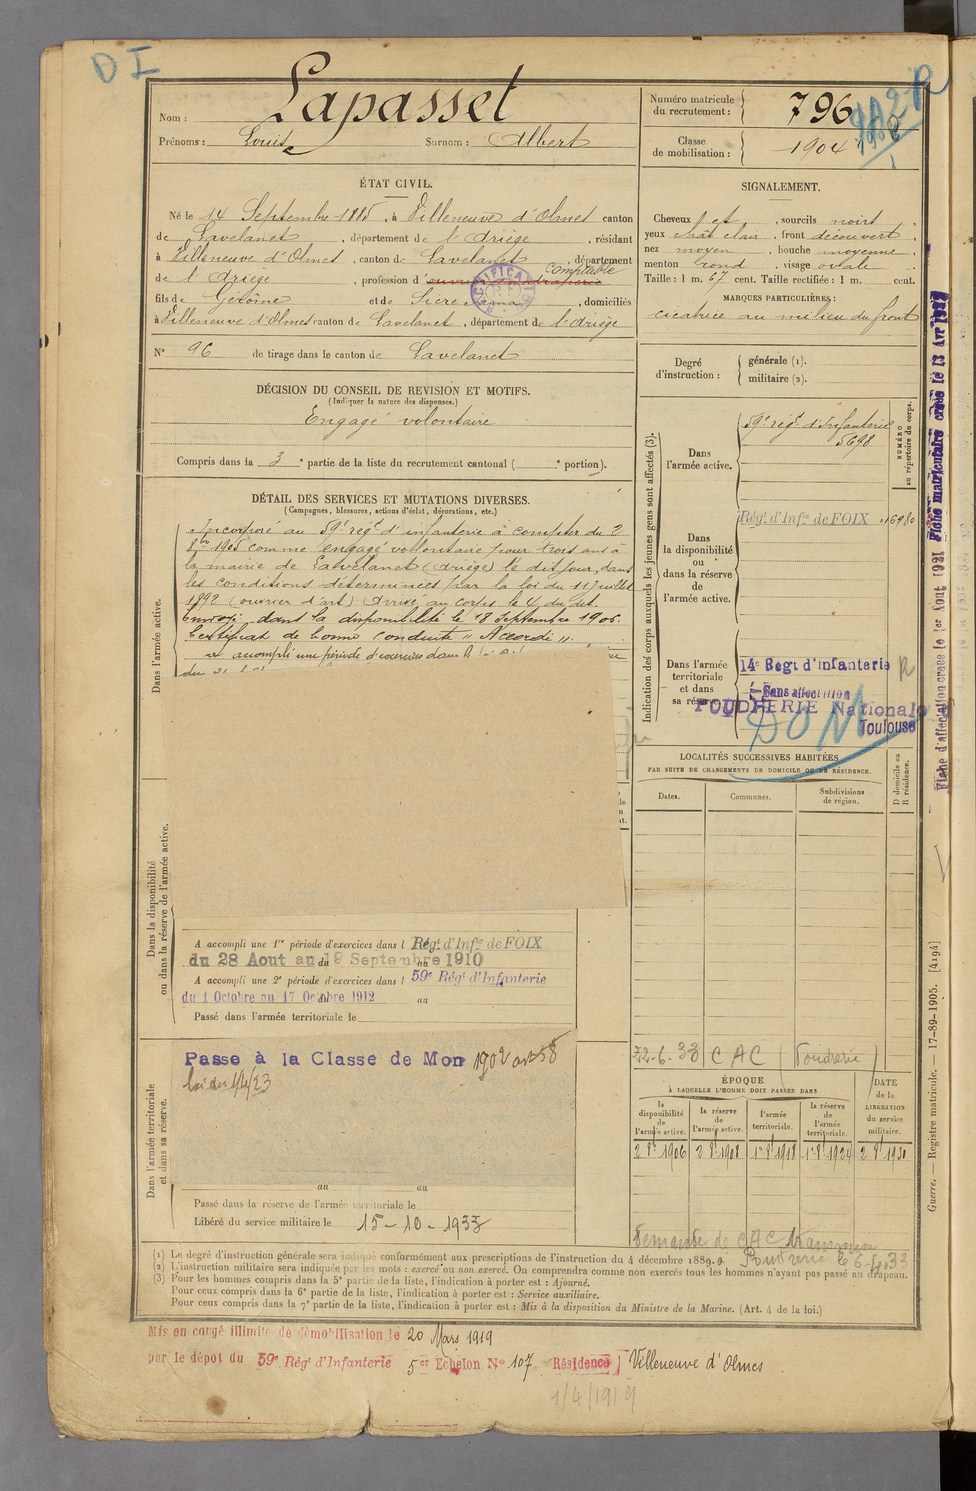 D I
Nom : Lapasset
Prénoms : Louis Surnom : Albert
Numéro matricule du recrutement : 796
Classe de mobilisation : 1904
ÉTAT CIVIL.
Né le 14 Septembre 1885, à Villeneuve d'Olmes canton
de Lavelanet, département de l'Ariège, résidant
à Villeneuve d'Olmes, canton de Lavelanet, département
de l'Ariège, profession d' comptable
fils de Gérôme et de domiciliés
à Villeneuve d'Olmes canton de Lavelanet, département de l'Ariège
N° 96 de tirage dans le canton de Lavelanet
SIGNALEMENT.
Cheveux , sourcils noirs
yeux chat clair, front découvert
nez moyen, bouche moyenne
menton rond, visage ovale
Taille : 1 m. 67 cent. Taille rectifiée : 1 m. cent.
MARQUES PARTICULIÈRES :
cicatrice au milieu du front
DÉCISION DU CONSEIL DE REVISION ET MOTIFS.
(Indiquer la nature des dispenses.)
Engagé volontaire
Compris dans la 3e partie de la liste du recrutement cantonal ( e portion).
Degré d'instruction : générale (1). militaire (2).
DÉTAIL DES SERVICES ET MUTATIONS DIVERSES.
(Campagnes, blessures, actions d'éclat, décorations, etc.)
Incorporé au 59e régt d'infanterie à compter du 2
8bre 1905 comme engagé volontaire pour trois ans à
la mairie de Lavelanet (Ariège) le dit jour, dans
les conditions déterminées par la loi du 11 juillet
1892 (ouvrier d'art) Arrivé au corps le 4 du dit.
Envoyé dans la disponibilité le 18 Septembre 1906.
Certificat de bonne conduite "Accordé".
a accompli une période d'exercices dans
Dans l'armée active.
Dans la disponibilité ou dans la réserve de l'armée active.
A accompli une 1re période d'exercices dans l Régt d'Infie de FOIX
du 28 Aout au 19 Septembre 1910
A accompli une 2e période d'exercices dans l 59e Régt d'Infanterie
du 1 Octobre au 17 Octobre 1912 au
Passé dans l'armée territoriale le
Dans l'armée territoriale et dans sa réserve.
Passe à la Classe de Mon 1902 art 58
loi du 1/4/23
au au
Passé dans la réserve de l'armée territoriale le
Libéré du service militaire le 15-10-1933
Indication des corps auxquels les jeunes gens sont affectés (3).
NUMÉRO au répertoire du corps.
Dans l'armée active.
59e régt d'Infanterie
5698
Dans la disponibilité ou dans la réserve de l'armée active.
Régt d'Infie de FOIX 16980
Dans l'armée territoriale et dans sa réserve.
14e Régt d'infanterie R
Sans affectation
POUDRERIE Nationale
Toulouse
DOM
LOCALITÉS SUCCESSIVES HABITÉES
PAR SUITE DE CHANGEMENTS DE DOMICILE OU DE RÉSIDENCE.
Dates. Communes. Subdivisions de région. D domicile ou R résidence.
CAC (Poudrerie)
ÉPOQUE
À LAQUELLE L'HOMME DOIT PASSER DANS
la disponibilité de l'armée active.
la réserve de l'armée active.
l'armée territoriale.
la réserve de l'armée territoriale.
DATE de la LIBÉRATION du service militaire.
2 8e 1906 2 8e 1908 1er 8e 1918 1er 8e 1924 2 8e 1930
Demande de CAC transmise
Poudrerie le 6-4-33
(1) Le degré d'instruction générale sera indiqué conformément aux prescriptions de l'instruction du 4 décembre 1889.
(2) L'instruction militaire sera indiquée par les mots : exercé ou non exercé. On comprendra comme non exercés tous les hommes n'ayant pas passé au drapeau.
(3) Pour les hommes compris dans la 5e partie de la liste, l'indication à porter est : Ajourné.
Pour ceux compris dans la 6e partie de la liste, l'indication à porter est : Service auxiliaire.
Pour ceux compris dans la 7e partie de la liste, l'indication à porter est : Mis à la disposition du Ministre de la Marine. (Art. 4 de la loi.)
Mis en congé illimité de démobilisation le 20 Mars 1919
par le dépot du 59e Régt d'Infanterie 5er Echelon N° 107 Résidence Villeneuve d'Olmes
1/4/1919
Fiche d'affectation créée le 1er Aout 1921 Fiche matriculaire créée le 13 Avr
Guerre. — Registre matricule. — 17-89-1905. [4194]